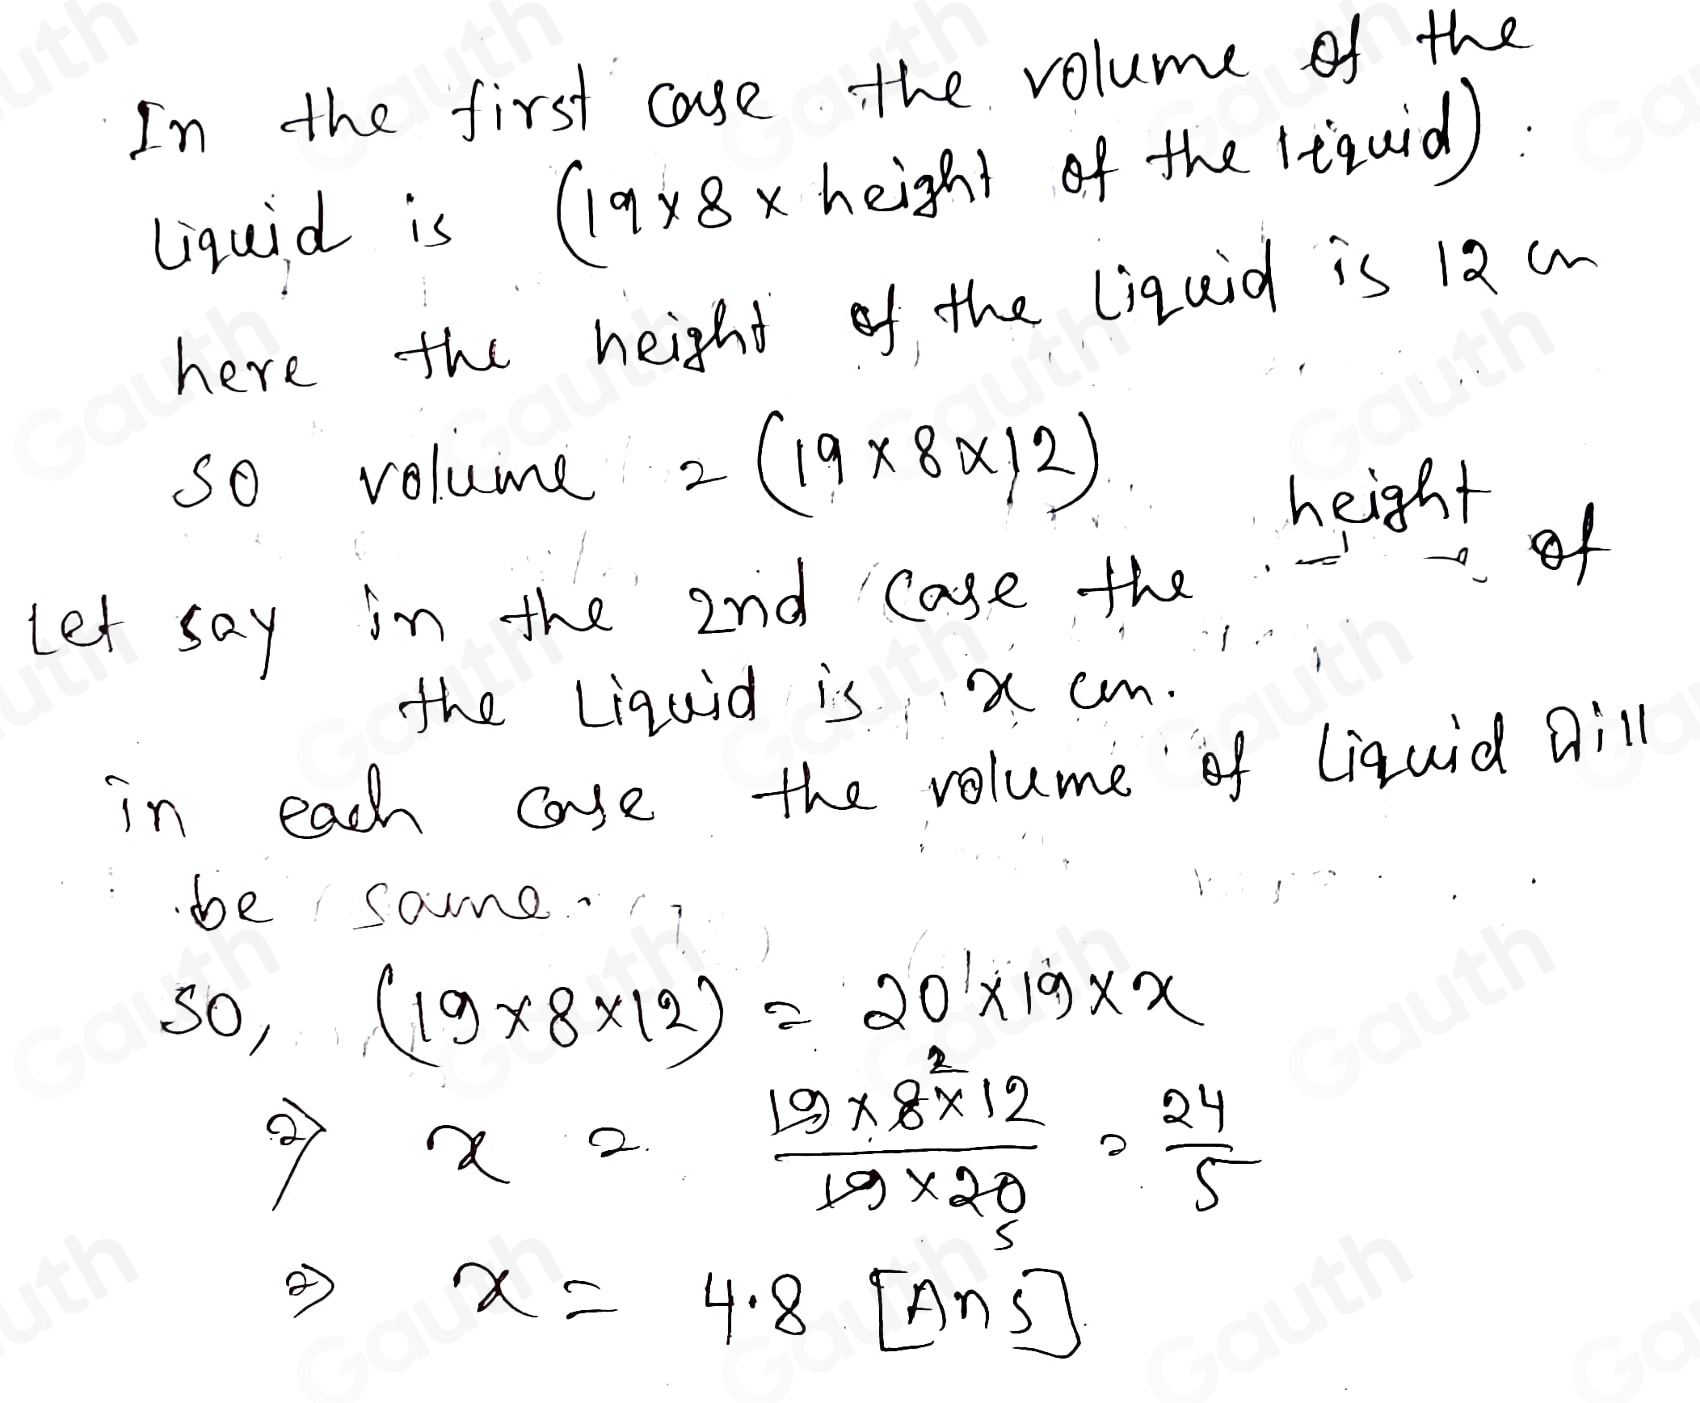 In the first case the volume of the
liquid is (19×8× height of the liquid)
here the height of the liquid is 12 cm
so volume = (19×8×12)
Let say in the 2nd case the height of
the liquid is x cm.
in each case the volume of liquid will
be same.
so, (19×8×12) = 20×19×x
⇒ x = 19×8×12 / 19×20 = 24/5
2
5
⇒ x = 4.8 [Ans]